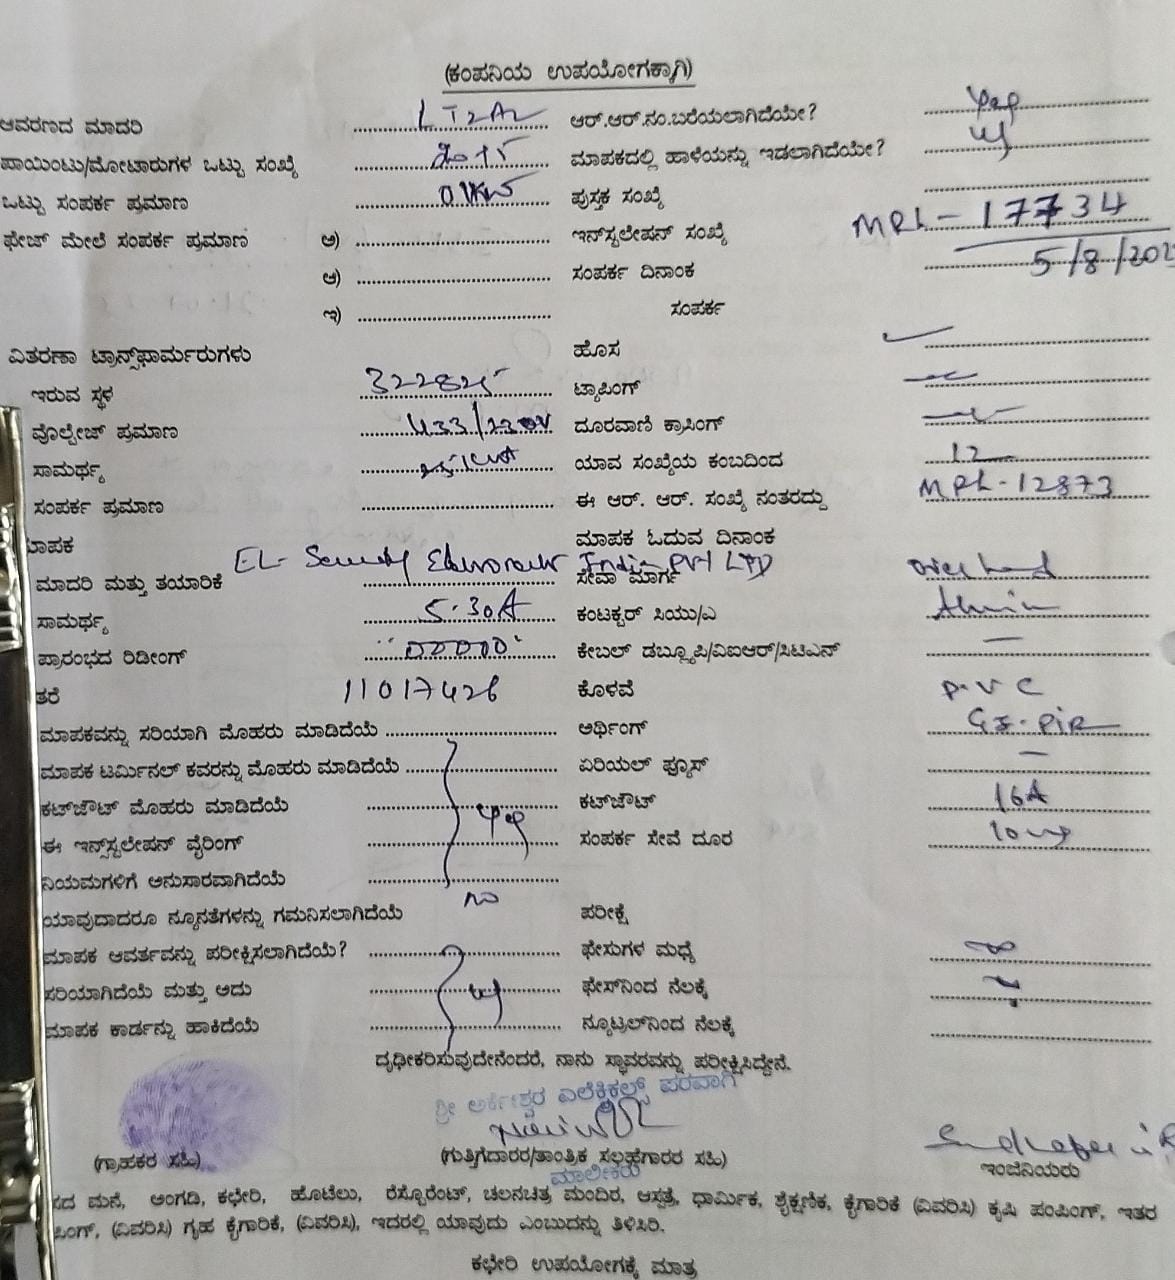 (ಕಂಪನಿಯ ಉಪಯೋಗಕ್ಕಾಗಿ)
ಆವರಣದ ಮಾದರಿ LT2A2 ಆರ್.ಆರ್.ನಂ.ಬರೆಯಲಾಗಿದೆಯೇ? yes
ಪಾಯಿಂಟು/ಮೋಟಾರುಗಳ ಒಟ್ಟು ಸಂಖ್ಯೆ ಮಾಪಕದಲ್ಲಿ ಹಾಳೆಯನ್ನು ಇಡಲಾಗಿದೆಯೇ?
ಒಟ್ಟು ಸಂಪರ್ಕ ಪ್ರಮಾಣ 0.1KW ಪುಸ್ತಕ ಸಂಖ್ಯೆ
ಫೇಜ್ ಮೇಲೆ ಸಂಪರ್ಕ ಪ್ರಮಾಣ ಅ) ಇನ್‌ಸ್ಟಲೇಷನ್ ಸಂಖ್ಯೆ MPL-17734
ಆ) ಸಂಪರ್ಕ ದಿನಾಂಕ 5/8/202
ಇ) ಸಂಪರ್ಕ
ವಿತರಣಾ ಟ್ರಾನ್ಸ್‌ಫಾರ್ಮರುಗಳು ಹೊಸ
ಇರುವ ಸ್ಥಳ ಟ್ಯಾಪಿಂಗ್
ವೊಲ್ಟೇಜ್ ಪ್ರಮಾಣ 433/230V ದೂರವಾಣಿ ಕ್ರಾಸಿಂಗ್
ಸಾಮರ್ಥ್ಯ ಯಾವ ಸಂಖ್ಯೆಯ ಕಂಬದಿಂದ 12
ಸಂಪರ್ಕ ಪ್ರಮಾಣ ಈ ಆರ್. ಆರ್. ಸಂಖ್ಯೆ ನಂತರದ್ದು MPL-12873
ಮಾಪಕ ಮಾಪಕ ಓದುವ ದಿನಾಂಕ
ಮಾದರಿ ಮತ್ತು ತಯಾರಿಕೆ India PVT LTD ಸೇವಾ ಮಾರ್ಗ Over head
ಸಾಮರ್ಥ್ಯ 5.30A ಕಂಟಕ್ಟರ್ ಸಿಯು/ಎ
ಪ್ರಾರಂಭದ ರಿಡೀಂಗ್ "00000" ಕೇಬಲ್ ಡಬ್ಲ್ಯೂಪಿ/ವಿಐಆರ್/ಸಿಟಿಎನ್ —
ತರೆ 11017426 ಕೊಳವೆ P.V.C
ಮಾಪಕವನ್ನು ಸರಿಯಾಗಿ ಮೊಹರು ಮಾಡಿದೆಯೆ ಆರ್ಥಿಂಗ್
ಮಾಪಕ ಟರ್ಮಿನಲ್ ಕವರನ್ನು ಮೊಹರು ಮಾಡಿದೆಯೆ ಏರಿಯಲ್ ಫ್ಯೂಸ್ —
ಕಟ್‌ಔಟ್ ಮೊಹರು ಮಾಡಿದೆಯೆ yes ಕಟ್‌ಔಟ್ 16A
ಈ ಇನ್ಸ್‌ಸ್ಟಲೇಷನ್ ವೈರಿಂಗ್ ಸಂಪರ್ಕ ಸೇವೆ ದೂರ
ನಿಯಮಗಳಿಗೆ ಅನುಸಾರವಾಗಿದೆಯೆ
ಯಾವುದಾದರೂ ನ್ಯೂನತೆಗಳನ್ನು ಗಮನಿಸಲಾಗಿದೆಯೆ no ಪರೀಕ್ಷೆ
ಮಾಪಕ ಆವರ್ತವನ್ನು ಪರೀಕ್ಷಿಸಲಾಗಿದೆಯೆ? ಫೇಸುಗಳ ಮಧ್ಯೆ
ಸರಿಯಾಗಿದೆಯೆ ಮತ್ತು ಅದು ಫೇಸ್‌ನಿಂದ ನೆಲಕ್ಕೆ
ಮಾಪಕ ಕಾರ್ಡನ್ನು ಹಾಕಿದೆಯೆ ನ್ಯೂಟ್ರಲ್‌ನಿಂದ ನೆಲಕ್ಕೆ
ದೃಢೀಕರಿಸುವುದೇನೆಂದರೆ, ನಾನು ಸ್ಥಾವರವನ್ನು ಪರೀಕ್ಷಿಸಿದ್ದೇನೆ.
ಶ್ರೀ ಅರ್ಕೇಶ್ವರ ಎಲೆಕ್ಟ್ರಿಕಲ್ಸ್ ಪರವಾಗಿ
(ಗ್ರಾಹಕರ ಸಹಿ) (ಗುತ್ತಿಗೆದಾರರ/ತಾಂತ್ರಿಕ ಸಲಹೆಗಾರರ ಸಹಿ) ಇಂಜಿನಿಯರು
ಮಾಲೀಕರು
ಸದ ಮನೆ, ಅಂಗಡಿ, ಕಛೇರಿ, ಹೊಟೆಲು, ರೆಸ್ಟೊರೆಂಟ್, ಚಲನಚಿತ್ರ ಮಂದಿರ, ಆಸ್ಪತ್ರೆ, ಧಾರ್ಮಿಕ, ಶೈಕ್ಷಣಿಕ, ಕೈಗಾರಿಕೆ (ವಿವರಿಸಿ) ಕೃಷಿ ಪಂಪಿಂಗ್, ಇತರ
ಪಿಂಗ್, (ವಿವರಿಸಿ) ಗೃಹ ಕೈಗಾರಿಕೆ, (ವಿವರಿಸಿ), ಇದರಲ್ಲಿ ಯಾವುದು ಎಂಬುದನ್ನು ತಿಳಿಸಿರಿ.
ಕಛೇರಿ ಉಪಯೋಗಕ್ಕೆ ಮಾತ್ರ